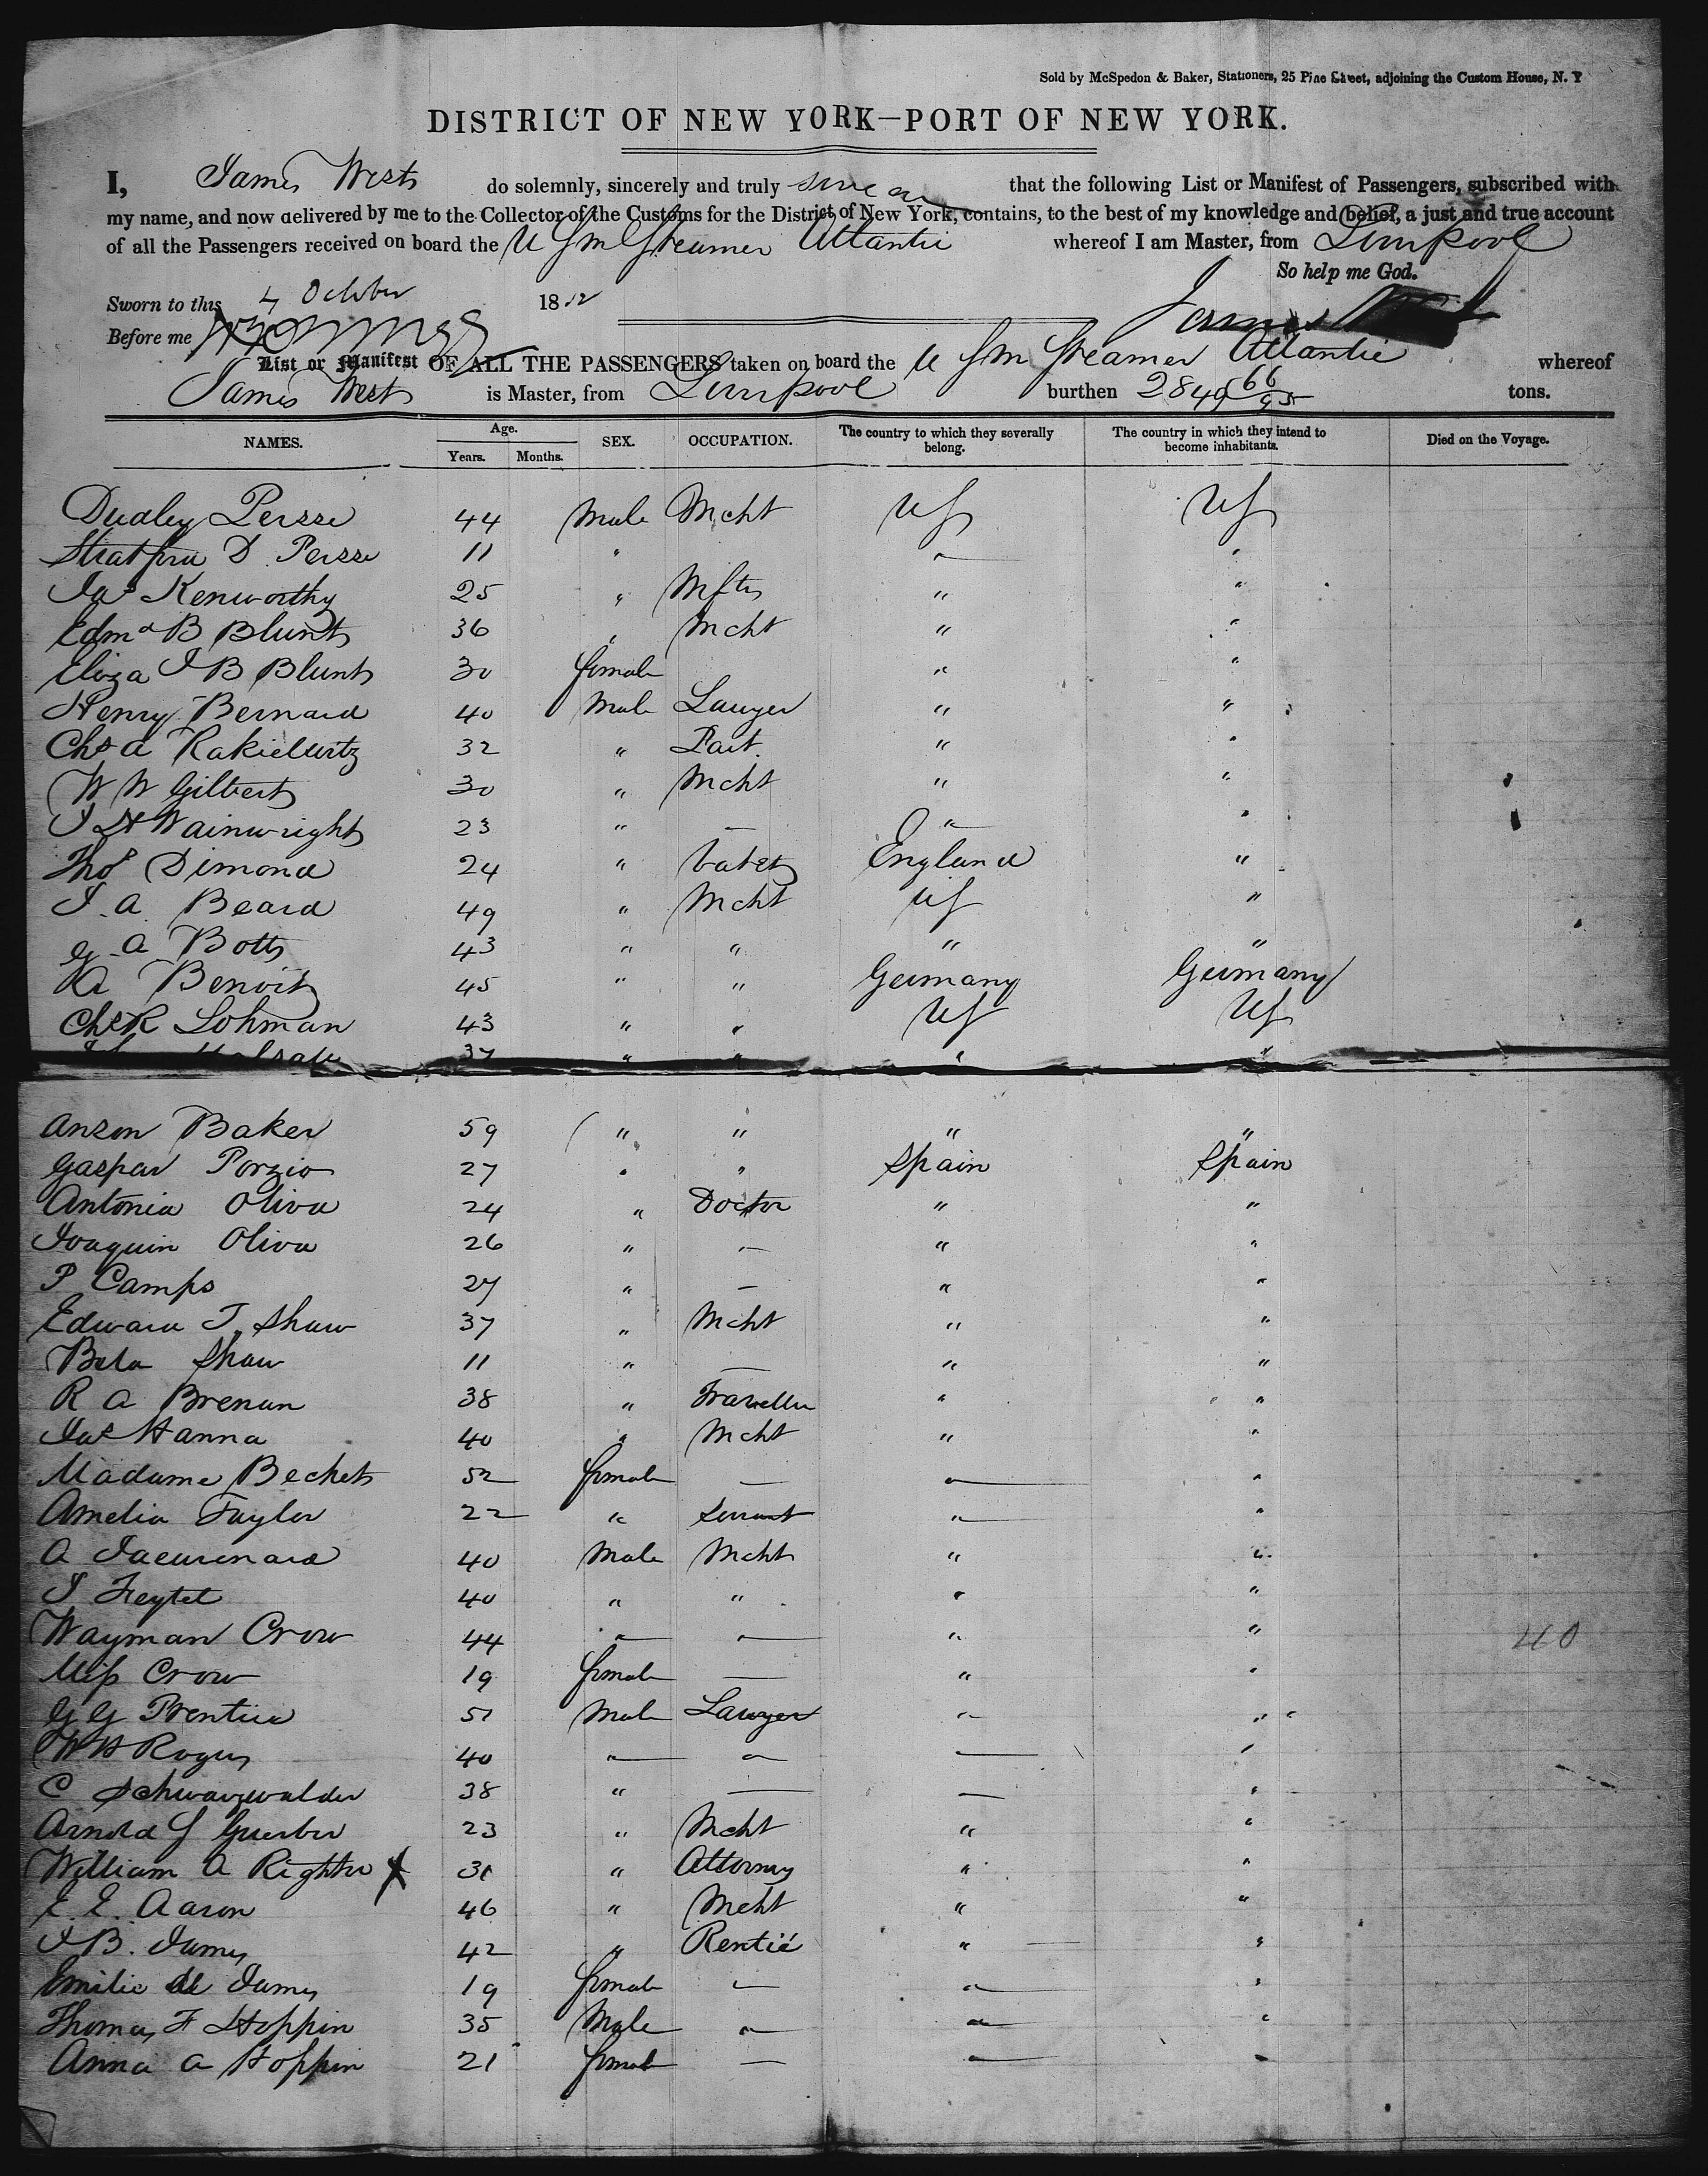 Sold by McSpedon & Baker, Stationers, 25 Pine Street, adjoining the Custom House, N. Y
DISTRICT OF NEW YORK—PORT OF NEW YORK.
I, James West do solemnly, sincerely and truly swear that the following List or Manifest of Passengers, subscribed with
my name, and now delivered by me to the Collector of the Customs for the District of New York, contains, to the best of my knowledge and belief, a just and true account
of all the Passengers received on board the U S M Steamer Atlantic whereof I am Master, from Liverpool
So help me God.
Sworn to this 4 October 1852
James West
Before me
List or Manifest OF ALL THE PASSENGERS taken on board the U S M Steamer Atlantic whereof
James West is Master, from Liverpool burthen 2849 66/95 tons.
NAMES. Age. Years. Months. SEX. OCCUPATION. The country to which they severally belong. The country in which they intend to become inhabitants. Died on the Voyage.
Dudley Persse 44 Male Mcht US US
Stratford D Persse 11 " " "
Jas Kenworthy 25 " Mftr " "
Edmd B Blunt 36 " Mcht " "
Eliza J B Blunt 30 female " "
Henry Bernard 40 Male Lawyer " "
Chs A 32 " " "
W W Gilbert 30 " Mcht " "
J H Wainwright 23 " — " "
Thos Dimond 24 " England "
J. A. Beard 49 " Mcht US "
G. A Botts 43 " " " "
A Benoit 45 " " Germany Germany
Chs R Lohman 43 " " US US
37 " " " "
Anson Baker 59 " " " "
Gaspar Porzio 27 " " Spain Spain
Antonia Oliva 24 " Doctor " "
Joaquin Oliva 26 " — " "
P Camps 27 " — " "
Edward T. Shaw 37 " Mcht " "
Shaw 11 " — " "
R A Brenan 38 " Traveller " "
Jas Hanna 40 " Mcht " "
Madame Bechet 52 female — " "
Amelia Taylor 22 " Servant " "
A 40 Male Mcht " "
J Feytel 40 " " " "
Wayman Crow 44 " " " " 40
Miss Crow 19 female — " "
G G Prentice 51 Male Lawyer " "
W H Rogers 40 " " — "
C Schwarzwalder 38 " — — "
Arnold Guerber 23 " Mcht " "
William A Righter X 31 " Attorney " "
E. E. Aaron 46 " Mcht " "
J B. James 42 " Rentié " "
Emilie de James 19 female " " "
Thomas F Hoppin 35 Male " " "
Anna A Hoppin 21 female — " "